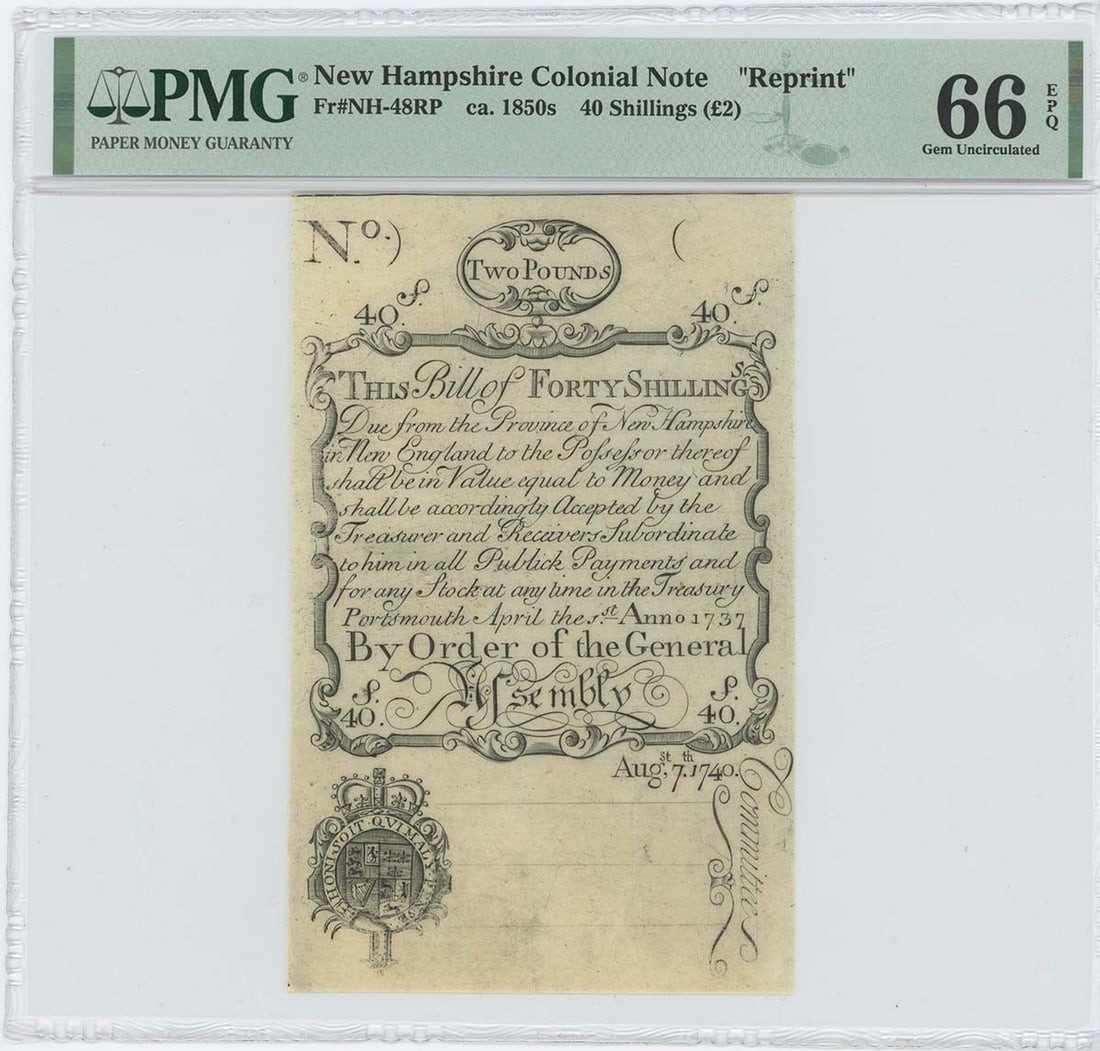 PMG® New Hampshire Colonial Note "Reprint"
Fr#NH-48RP ca. 1850s 40 Shillings (£2)
PAPER MONEY GUARANTY
66 EPQ
Gem Uncirculated
No.) (
TWO POUNDS
40.ſ. 40.ſ.
THIS Bill of FORTY SHILLINGS
Due from the Province of New Hampshire
in New England to the Poſseſsor thereof
shall be in Value equal to Money and
shall be accordingly Accepted by the
Treasurer and Receivers Subordinate
to him in all Publick Payments and
for any Stock at any time in the Treasury
Portsmouth April the 1.st Anno 1737
By Order of the General
Aſsembly
ſ. 40. ſ. 40.
Augst, 7.th 1740.
Committee
HONI·SOIT·QVI·MALY·PENSE